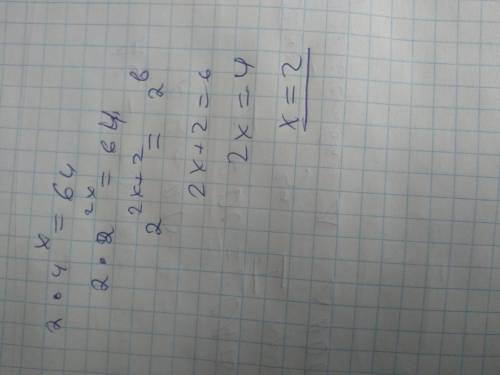 2 • 4^x = 64
2 • 2^2x = 64
2^2x+2 = 2^6
2x+2 = 6
2x = 4
x = 2